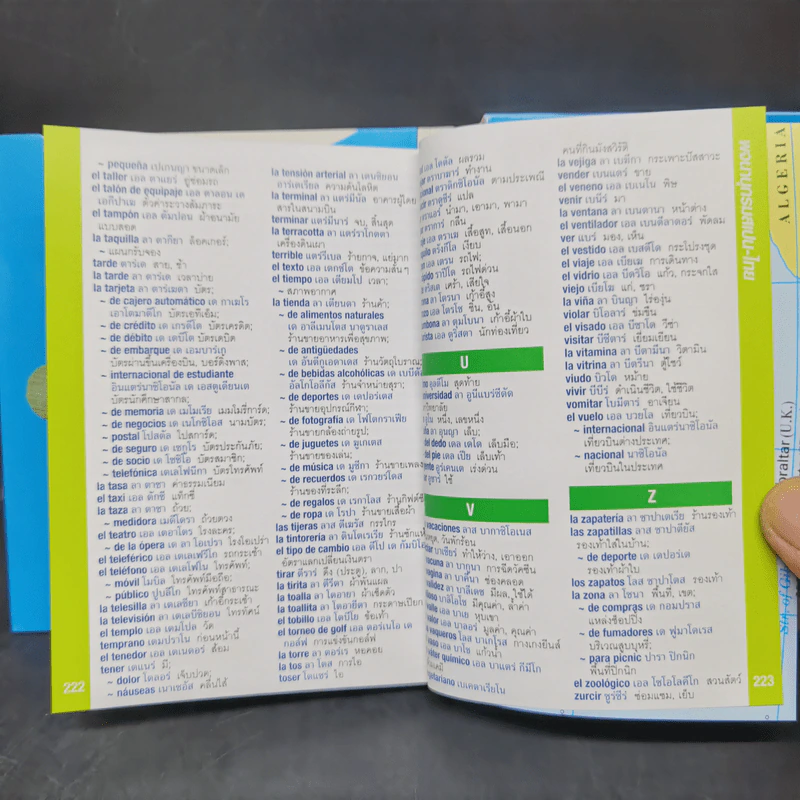 ~ pequeña เปเกนญา ขนาดเล็ก
el taller เอล ตาแยร์ อู่ซ่อมรถ
el talón de equipaje เอล ตาลอน เด
เอกีปาเฆ ตั๋วค่าระวางสัมภาระ
el tampón เอล ตัมปอน ผ้าอนามัย
แบบสอด
la taquilla ลา ตากียา ล็อคเกอร์;
~ แผนกรับจอง
tarde ตาร์เด สาย, ช้า
la tarde ลา ตาร์เด เวลาบ่าย
la tarjeta ลา ตาร์เฆตา บัตร;
~ de cajero automático เด กาเฆโร
เอาโตมาติโก บัตรเอทีเอ็ม;
~ de crédito เด เกรดีโต บัตรเครดิต;
~ de débito เด เดบีโต บัตรเดบิต
~ de embarque เด เอมบาร์เก
บัตรผ่านขึ้นเครื่องบิน, บอร์ดิ้งพาส;
~ internacional de estudiante
อินแตร์นาซิโอนัล เด เอสตูเดียนเต
บัตรนักศึกษาสากล;
~ de memoria เด เมโมเรีย เมมโมรี่การ์ด;
~ de negocios เด เนโกซิโอส นามบัตร;
~ postal โปสตัล โปสการ์ด;
~ de seguro เด เซกูโร บัตรประกันภัย;
~ de socio เด โซซิโอ บัตรสมาชิก;
~ telefónica เตเลโฟนิกา บัตรโทรศัพท์
la tasa ลา ตาซา ค่าธรรมเนียม
el taxi เอล ตักซี แท็กซี่
la taza ลา ตาซา ถ้วย;
~ medidora เมดีโดรา ถ้วยตวง
el teatro เอล เตอาโตร โรงละคร;
~ de la ópera เด ลา โอเปรา โรงโอเปร่า
el teleférico เอล เตเลเฟรีโก รถกระเช้า
el teléfono เอล เตเลโฟโน โทรศัพท์;
~ móvil โมบิล โทรศัพท์มือถือ;
~ público ปูบลีโก โทรศัพท์สาธารณะ
la telesilla ลา เตเลซียา เก้าอี้กระเช้า
la televisión ลา เตเลบิซิยอน โทรทัศน์
el templo เอล เตมโปล วัด
temprano เตมปราโน ก่อนหน้านี้
el tenedor เอล เตเนดอร์ ส้อม
tener เตแนร์ มี;
~ dolor โดลอร์ เจ็บปวด;
~ náuseas เนาเซอัส คลื่นไส้
222
la tensión arterial ลา เตนซิยอน
อาร์เตเรียล ความดันโลหิต
la terminal ลา แตร์มีนัล อาคารผู้โดย
สารในสนามบิน
terminar แตร์มีนาร์ จบ, สิ้นสุด
la terracotta ลา แตร์ราโกตตา
เครื่องดินเผา
terrible แตร์รีเบล ร้ายกาจ, แย่มาก
el texto เอล เตกซ์โต ข้อความสั้นๆ
el tiempo เอล เตียมโป เวลา;
~ สภาพอากาศ
la tienda ลา เตียนดา ร้านค้า;
~ de alimentos naturales
เด อาลีเมนโตส นาตูราเลส
ร้านขายอาหารเพื่อสุขภาพ;
~ de antigüedades
เด อันตีกูเอดาเดส ร้านวัตถุโบราณ;
~ de bebidas alcohólicas เด เบบีดัส
อัลโกโอลีกัส ร้านจำหน่ายสุรา;
~ de deportes เด เดปอร์เตส
ร้านขายอุปกรณ์กีฬา;
~ de fotografía เด โฟโตกราเฟีย
ร้านขายกล้องถ่ายรูป;
~ de juguetes เด ฆูเกเตส
ร้านขายของเล่น;
~ de música เด มูซีกา ร้านขายเพลง
~ de recuerdos เด เรกวยร์โดส
ร้านของที่ระลึก;
~ de regalos เด เรกาโลส ร้านกิฟต์ช็
~ de ropa เด โรปา ร้านขายเสื้อผ้า
las tijeras ลาส ตีเฆรัส กรรไกร
la tintorería ลา ตินโตเรเรีย ร้านซักแห้
el tipo de cambio เอล ตีโป เด กัมบิโ
อัตราแลกเปลี่ยนเงินตรา
tirar ตีราร์ ดึง (ประตู), ลาก, ปา
la tirita ลา ตีรีตา ผ้าพันแผล
la toalla ลา โตอายา ผ้าเช็ดตัว
la toallita ลา โตอายีตา กระดาษเปียก
el tobillo เอล โตบีโย ข้อเท้า
el torneo de golf เอล ตอร์เนโอ เด
กอล์ฟ การแข่งขันกอล์ฟ
la torre ลา ตอร์เร หอคอย
la tos ลา โตส การไอ
toser โตแซร์ ไอ
เอล โตตัล ผลรวม
ทำงาน
ตามประเพณี
แปล
นำมา, เอามา, พามา
กลืน
เสื้อสูท, เสื้อนอก
เงียบ
รถไฟ;
รถไฟด่วน
เศร้า, เสียใจ
เก้าอี้สูง
ชิ้น, อัน
เก้าอี้ผ้าใบ
นักท่องเที่ยว
U
สุดท้าย
หนึ่ง, เลขหนึ่ง
เล็บ;
del dedo เดล เดโด เล็บมือ;
del pie เดล เปีย เล็บเท้า
เร่งด่วน
ใช้
V
vacaciones ลาส บากาซิโอเนส
หยุด, วันพักร้อน
ทำให้ว่าง, เอาออก
การฉีดวัคซีน
ช่องคลอด
มีผล, ใช้ได้
มีคุณค่า, ล้ำค่า
หุบเขา
มูลค่า, คุณค่า
กางเกงยีนส์
แก้วน้ำ
químico
คนที่กินมังสวิรัติ
la vejiga ลา เบฆีกา กระเพาะปัสสาวะ
vender เบนแดร์ ขาย
el veneno เอล เบเนโน พิษ
venir เบนีร์ มา
la ventana ลา เบนตานา หน้าต่าง
el ventilador เอล เบนตีลาดอร์ พัดลม
ver แบร์ มอง, เห็น
el vestido เอล เบสตีโด กระโปรงชุด
el viaje เอล เบียเฆ การเดินทาง
el vidrio เอล บีดริโอ แก้ว, กระจกใส
viejo เบียโฆ แก่, ชรา
la viña ลา บินญา ไร่องุ่น
violar บิโอลาร์ ข่มขืน
el visado เอล บีซาโด วีซ่า
visitar บีซีตาร์ เยี่ยมเยียน
la vitamina ลา บีตามีนา วิตามิน
la vitrina ลา บีตรีนา ตู้โชว์
viudo บิวโด หม้าย
vivir บีบีร์ ดำเนินชีวิต, ใช้ชีวิต
vomitar โบมีตาร์ อาเจียน
el vuelo เอล บวยโล เที่ยวบิน;
~ internacional อินแตร์นาซิโอนัล
เที่ยวบินต่างประเทศ;
~ nacional นาซิโอนัล
เที่ยวบินในประเทศ
Z
la zapatería ลา ซาปาเตเรีย ร้านรองเท้า
las zapatillas ลาส ซาปาตียัส
รองเท้าใส่ในบ้าน;
~ de deporte เด เดปอร์เต
รองเท้าผ้าใบ
los zapatos โลส ซาปาโตส รองเท้า
la zona ลา โซนา พื้นที่, เขต;
~ de compras เด กอมปราส
แหล่งช็อปปิ้ง
~ de fumadores เด ฟูมาโดเรส
บริเวณสูบบุหรี่;
~ para picnic ปารา ปิกนิก
พื้นที่ปิกนิก
el zoológico เอล โซโอโลคีโก สวนสัตว์
zurcir ซูร์ซีร์ ซ่อมแซม, เย็บ
223
พจนานุกรมสเปน-ไทย
ALGERIA
Gibraltar (U.K.)